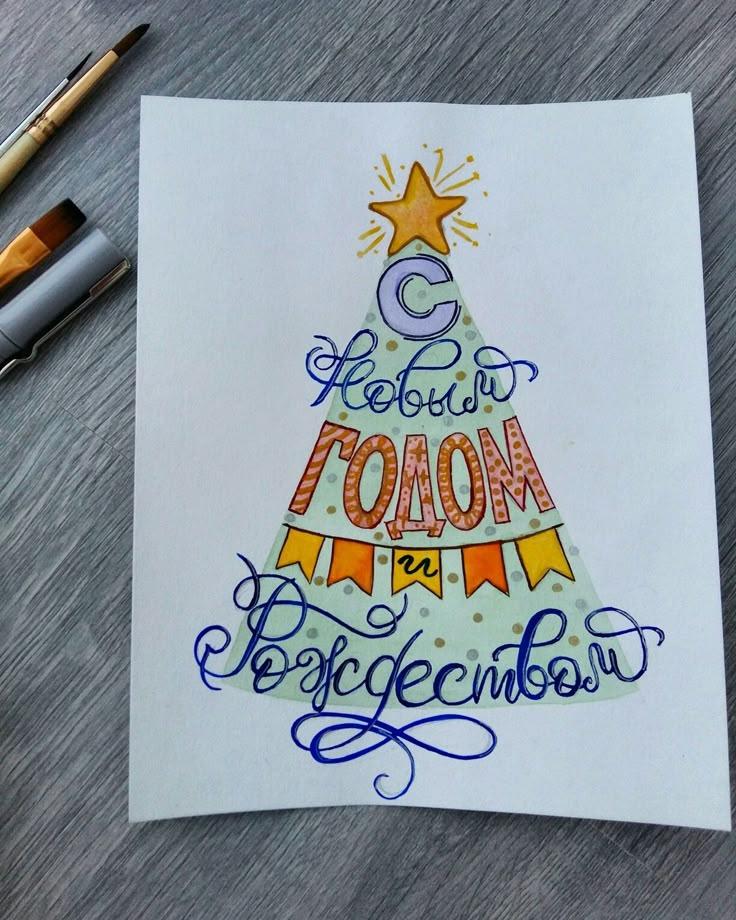 С
Новым
ГОДОМ
и
Рождеством